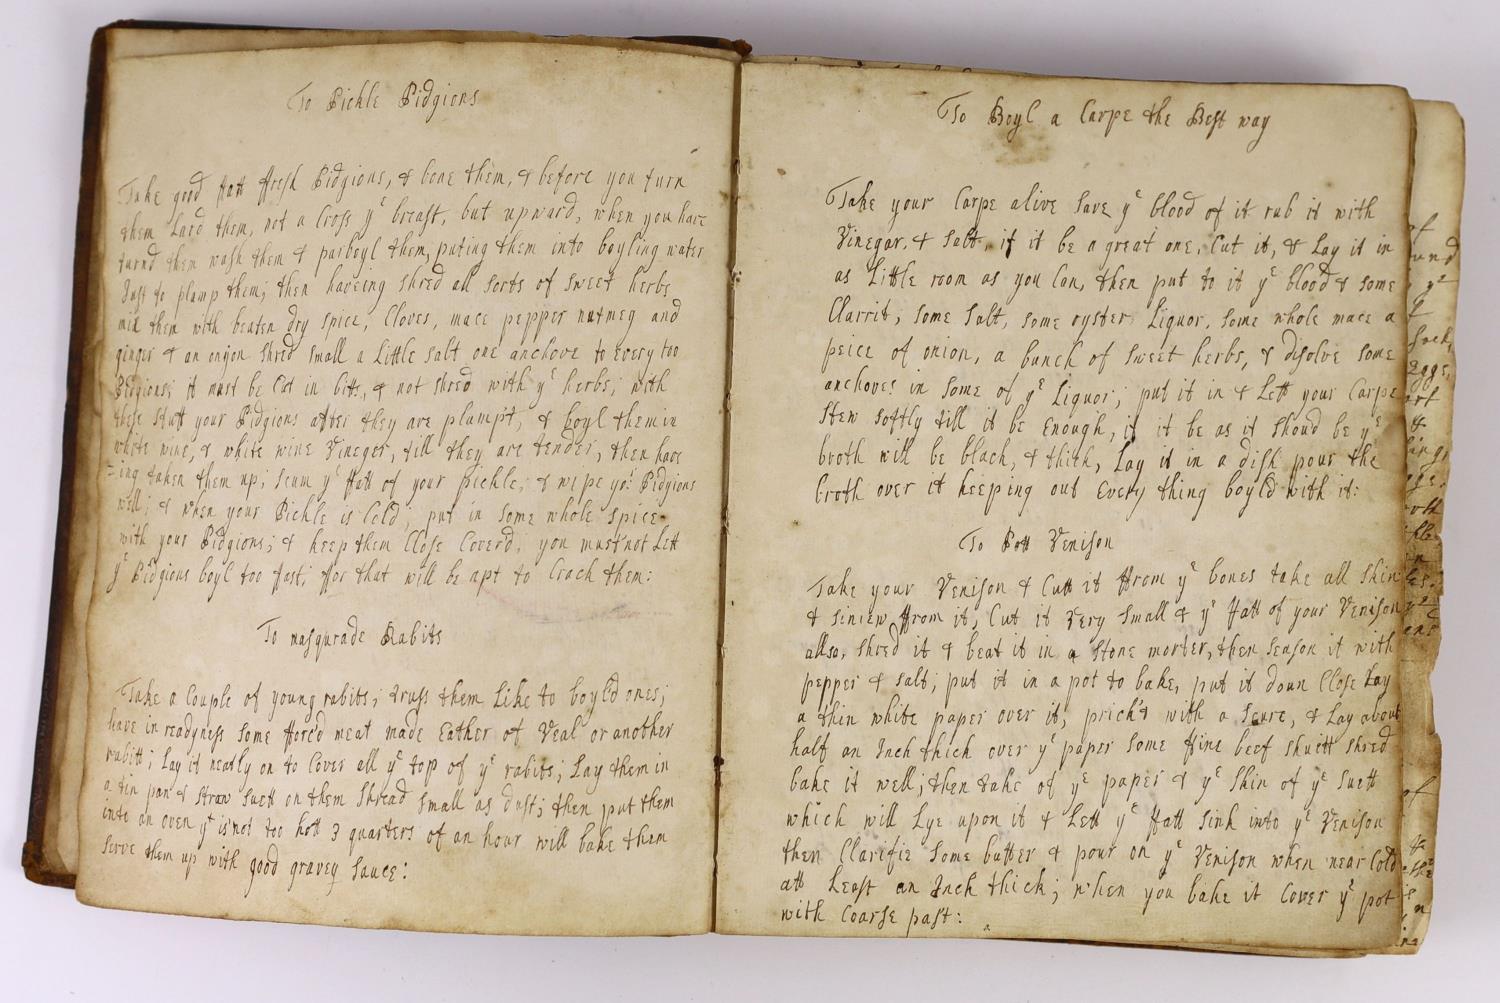 To Pickle Pidgions
Take good ffatt ffresh Pidgions, & bone them, & before you turn
them Lard them, not a Cross yᵉ breast, but upward, when you have
turnd them wash them & parboyl them, puting them into boyling water
Just to plamp them; then haveing shred all sorts of sweet herbs
mix them with beaten dry spice, Cloves, mace pepper nutmeg and
ginger & an onjon shred small a Little salt one anchove to Every too
Pidgions; it must be Cut in bitts, & not shred with yᵉ herbs; with
these stuff your Pidgions after they are plampt, & boyl them in
white wine, & white wine Vineger, till they are tender, then have
=ing taken them up; scum yᵉ ffatt of your pickle, & wipe yoʳ Pidgions
well; & when your Pickle is Cold; put in some whole spice
with your Pidgions; & keep them Close Coverd, you must not Lett
yᵉ Pidgions boyl too ffast; ffor that will be apt to Crack them:
To masqurade Rabits
Take a Couple of young rabits, truss them Like to boyld ones;
have in readyness some fforc'd meat made Eather of Veal or another
rabitt; Lay it neatly on to Cover all yᵉ top of yᵉ rabits; Lay them in
a tin pan & straw suett on them shread small as dust; then put them
into an oven yᵗ is not too hott 3 quarters of an hour will bake them
serve them up with good gravey sauce:
To Boyl a Carpe the Best way
Take your Carpe alive save yᵉ blood of it rub it with
Vinegar, & salt, if it be a great one, Cut it, & Lay it in
as Little room as you Can, then put to it yᵉ blood & some
Clarrit, some salt, some oyster Liquor, some whole mace a
peice of onion, a bunch of sweet herbs, & disolve some
anchoves in some of yᵉ Liquor; put it in & Lett your Carpe
stew softly till it be Enough, if it be as it shoud be yᵉ
broth will be black, & thick, Lay it in a dish pour the
broth over it keeping out Every thing boyld with it:
To Pott Venison
Take your Venison & Cutt it ffrom yᵉ bones take all skin
& siniew ffrom it, Cut it Very small & yᵉ ffatt of your Venison
allso, shred it & beat it in a stone morter, then season it with
pepper & salt; put it in a pot to bake, put it doun Close Lay
a thin white paper over it, prick't with a scure, & Lay about
half an Inch thick over yᵉ paper some ffine beef shuett shred
bake it well; then take of yᵉ paper & yᵉ skin of yᵉ suett
which will Lye upon it & Lett yᵉ ffatt sink into yᵉ Venison
then Clarifie some butter & pour on yᵉ Venison when near Cold
att Least an Inch thick; when you bake it Cover yᵉ pot
with Coarse past: